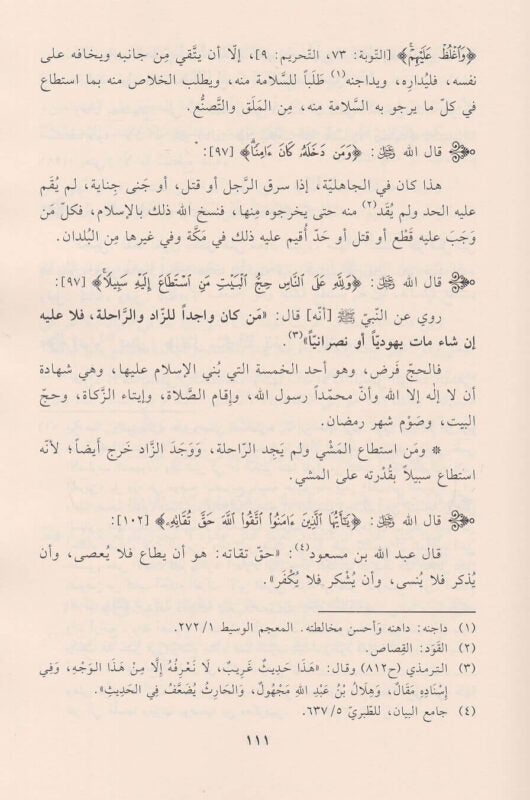 ﴿وَاغْلُظْ عَلَيْهِمْ﴾ [التوبة: ٧٣، التحريم: ٩]، إلّا أن يتَّقي مِن جانبه ويخافه على
نفسه، فليُدارِه، ويداجنه(١) طَلَباً للسَّلامة منه، ويطلب الخلاص منه بما استطاع
في كلّ ما يرجو به السَّلامة منه، مِن المَلَق والتَّصنُّع.
قال الله ﷻ: ﴿وَمَن دَخَلَهُۥ كَانَ ءَامِنًا﴾ [٩٧]:
هذا كان في الجاهليّة، إذا سرق الرَّجل أو قتل، أو جَنى جِناية، لم يُقَم
عليه الحد ولم يُقَد(٢) منه حتى يخرجوه مِنها، فنسخ الله ذلك بالإسلام، فكلّ مَن
وَجَبَ عليه قَطْع أو قتل أو حَدّ أُقيم عليه ذلك في مَكّة وفي غيرها مِن البُلدان.
قال الله ﷻ: ﴿وَلِلَّهِ عَلَى النَّاسِ حِجُّ الْبَيْتِ مَنِ اسْتَطَاعَ إِلَيْهِ سَبِيلًا﴾ [٩٧]:
روي عن النّبيّ ﷺ [أنّه] قال: «مَن كان واجداً للزّاد والرَّاحلة، فلا عليه
إن شاء مات يهوديّاً أو نصرانيّاً»(٣).
فالحجّ فَرض، وهو أحد الخمسة التي بُني الإسلام عليها، وهي شهادة
أن لا إله إلا الله وأنّ محمّداً رسول الله، وإقَام الصَّلاة، وإيتاء الزَّكاة، وحجّ
البيت، وصَوْم شهر رمضان.
* ومَن استطاع المَشْي ولم يَجِد الرّاحلة، وَوَجَدَ الزَّاد خَرج أيضاً؛ لأنّه
استطاع سبيلاً بقُدْرته على المشي.
قال الله ﷻ: ﴿يَٰٓأَيُّهَا الَّذِينَ ءَامَنُوا اتَّقُوا اللَّهَ حَقَّ تُقَاتِهِۦ﴾ [١٠٢]:
قال عبد الله بن مسعود(٤): «حقّ تقاته: هو أن يطاع فلا يُعصى، وأن
يُذكر فلا يُنسى، وأن يُشْكر فلا يُكْفَر».
(١) داجنه: داهنه وَأحسن مخالطته. المعجم الوسيط ٢٧٢/١.
(٢) القَوَد: القِصاص.
(٣) الترمذي (ح٨١٢) وقال: «هَذَا حَدِيثٌ غَرِيبٌ، لَا نَعْرِفُهُ إِلَّا مِنْ هَذَا الْوَجْهِ، وَفِي
إِسْنَادِهِ مَقَالٌ، وَهِلَالُ بْنُ عَبْدِ اللَّهِ مَجْهُولٌ، وَالحَارِثُ يُضَعَّفُ فِي الْحَدِيثِ».
(٤) جامع البيان، للطّبريّ ٦٣٧/٥.
١١١